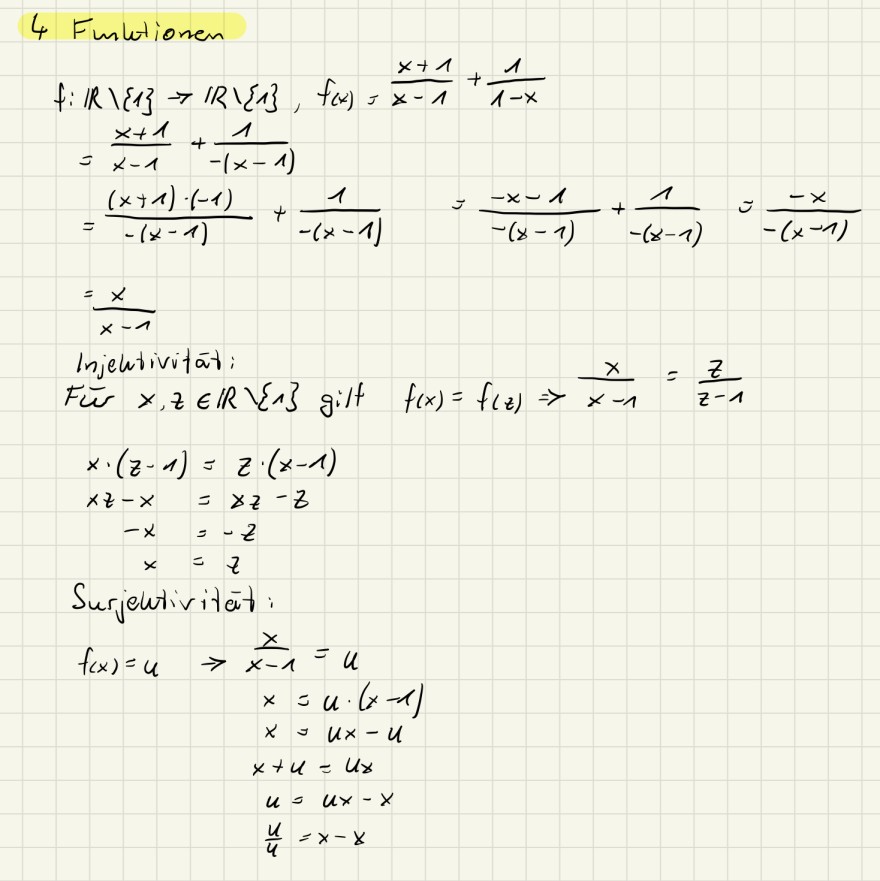 4 Funktionen
f: ℝ\{1} → ℝ\{1}, f(x) = (x+1)/(x-1) + 1/(1-x)
= (x+1)/(x-1) + 1/(-(x-1))
= ((x+1)·(-1))/(-(x-1)) + 1/(-(x-1)) = (-x-1)/(-(x-1)) + 1/(-(x-1)) = (-x)/(-(x-1))
= x/(x-1)
Injektivität:
Für x, z ∈ ℝ\{1} gilt f(x) = f(z) ⇒ x/(x-1) = z/(z-1)
x·(z-1) = z·(x-1)
xz-x = xz-z
-x = -z
x = z
Surjektivität:
f(x) = u ⇒ x/(x-1) = u
x = u·(x-1)
x = ux-u
x+u = ux
u = ux-x
u/u = x-x